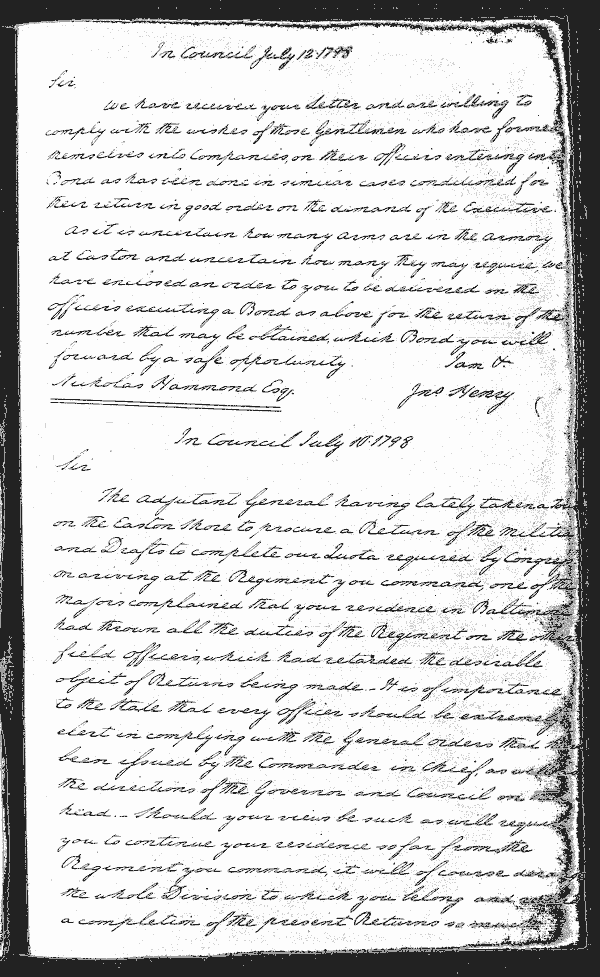 In Council July 12 1798
Sir,
We have received your Letter and are willing to
comply with the wishes of those Gentlemen who have formed
themselves into Companies, on their Officers entering into
Bond as has been done in similar cases conditioned for
their return in good order on the demand of the Executive.
As it is uncertain how many Arms are in the Armory
at Easton and uncertain how many they may require, we
have enclosed an order to you to be delivered on the
officers executing a Bond as above for the return of the
number that may be obtained, which Bond you will
forward by a safe opportunity. I am &.
Nicholas Hammond Esq. Jno Henry
In Council July 10 1798
Sir
The Adjutant General having lately taken a
on the Easton Shore to procure a Return of the Militia
and Drafts to complete our Quota required by Congress
on ariving at the Regiment you command, one of the
Majors complained that your residence in Baltimore
had thrown all the duties of the Regiment on the other
field officers, which had retarded the desirable
object of Returns being made. - It is of importance
to the State that every officer should be extremely
alert in complying with the General orders that
been issued by the Commander in Chief, as well
the directions of the Governor and Council on
head. - Should your views be such as will require
you to continue your residence so far from the
Regiment you command, it will of course
the whole Division to which you belong and
a completion of the present Returns so much